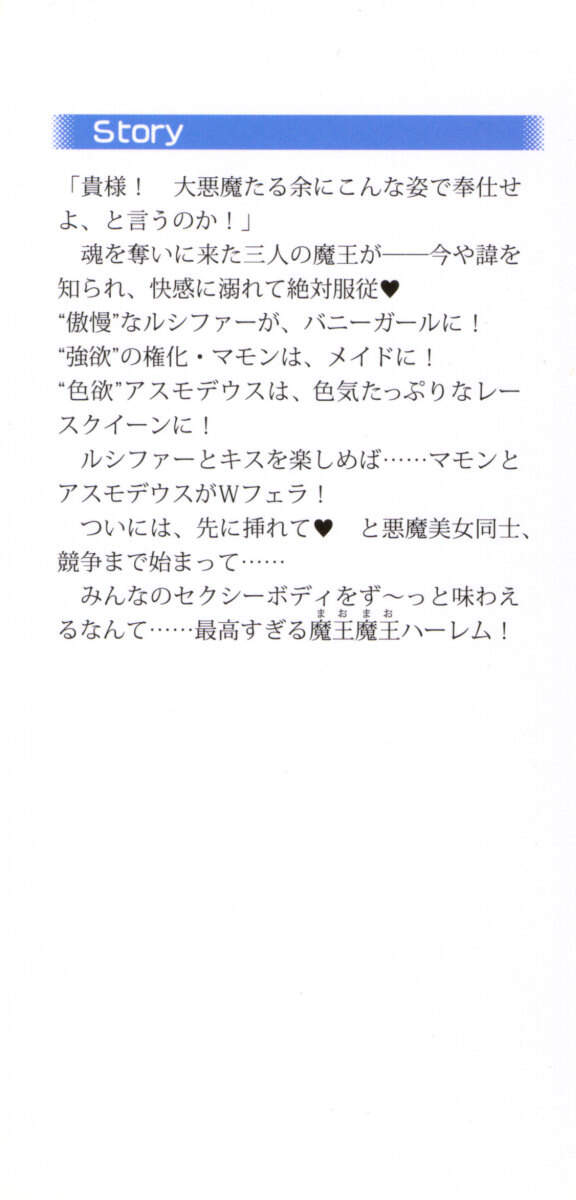 Story
「貴様！　大悪魔たる余にこんな姿で奉仕せ
よ、と言うのか！」
　魂を奪いに来た三人の魔王が――今や諱を
知られ、快感に溺れて絶対服従♥
“傲慢”なルシファーが、バニーガールに！
“強欲”の権化・マモンは、メイドに！
“色欲”アスモデウスは、色気たっぷりなレー
スクイーンに！
　ルシファーとキスを楽しめば……マモンと
アスモデウスがWフェラ！
　ついには、先に挿れて♥　と悪魔美女同士、
競争まで始まって……
　みんなのセクシーボディをず～っと味わえ
まおまお
るなんて……最高すぎる魔王魔王ハーレム！